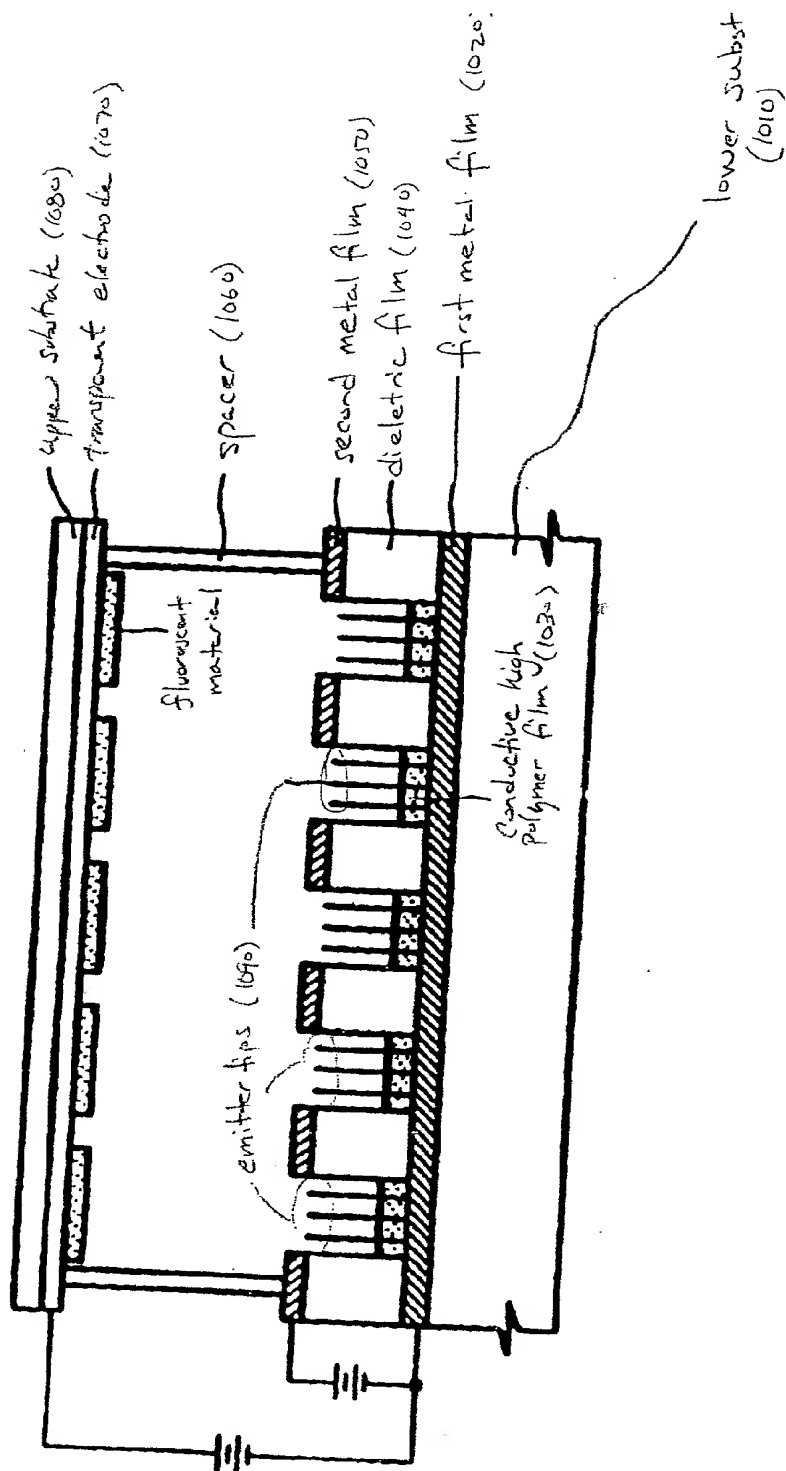 upper substrate (1080)
transparent electrode (1070)
spacer (1060)
second metal film (1050)
dieletric film (1040)
first metal film (1020)
lower subst
(1010)
fluorescent
material
emitter tips (1090)
Conductive high
polymer film (1030)